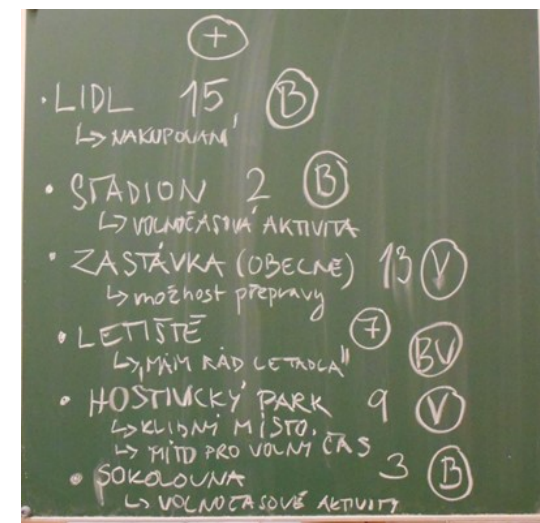 +
• LIDL 15 B
↳ NAKUPOVÁNÍ
• STADION 2 B
↳ VOLNOČASOVÁ AKTIVITA
• ZASTÁVKA (OBECNĚ) 13 V
↳ možnost přepravy
• LETIŠTĚ 7 BV
↳ „MÁM RÁD LETADLA"
• HOSTIVICKÝ PARK 9 V
↳ KLIDNÍ MÍSTO.
↳ MÍTO PRO VOLNÝ ČAS
• SOKOLOVNA 3 B
↳ VOLNOČASOVÉ AKTIVITY